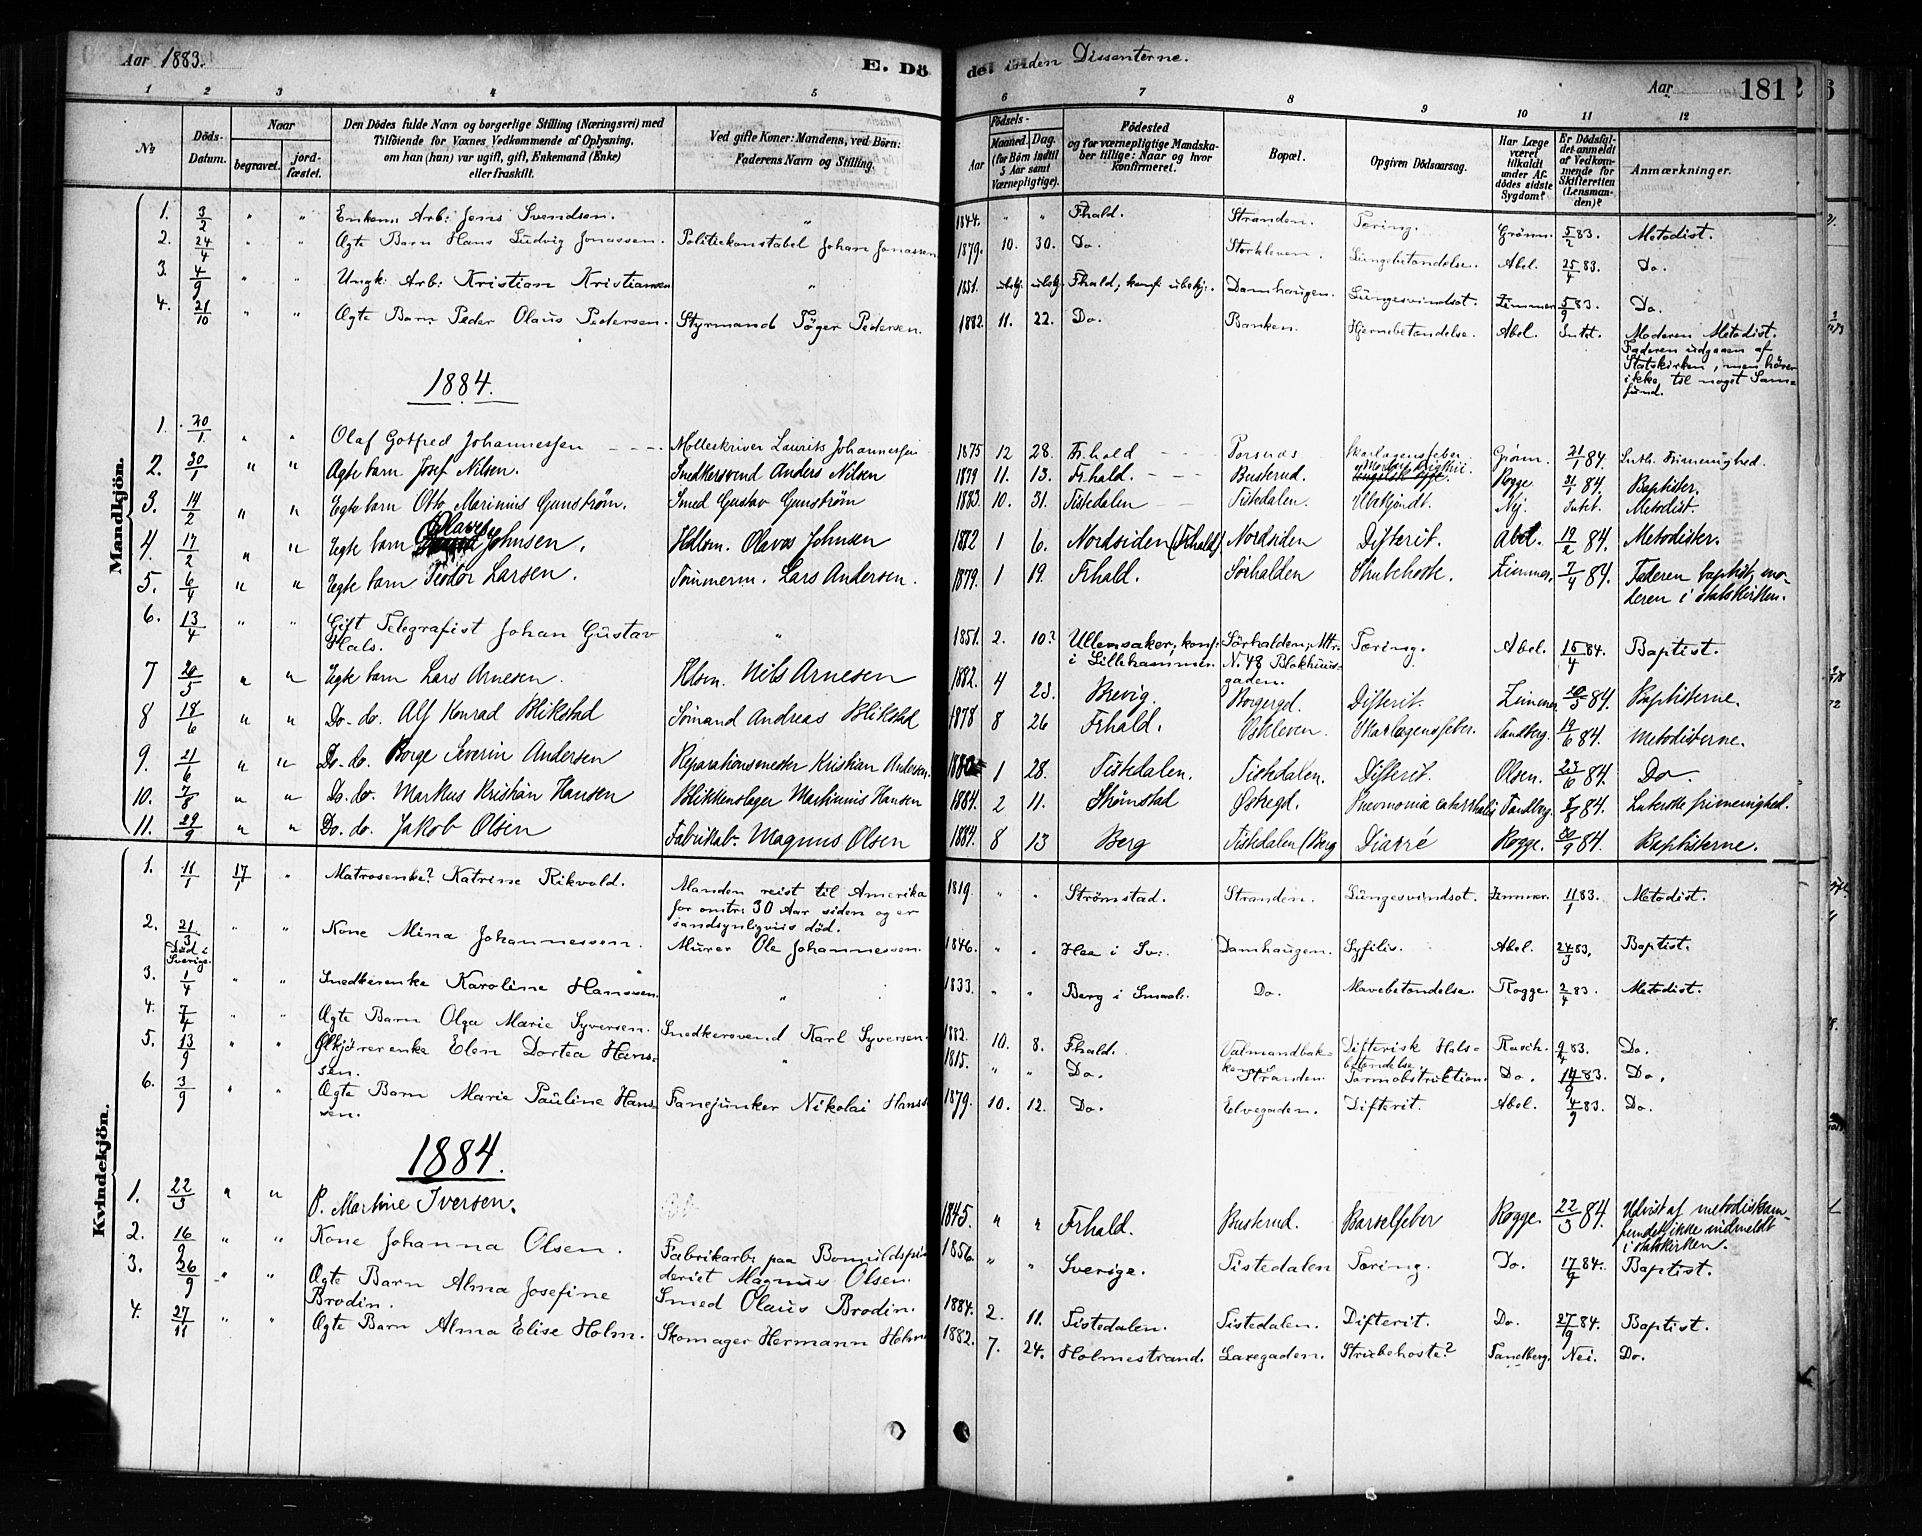 Aar 1883.
E. Dö
del inden Dissenterne.
Aar
181
1 2 3 4 5 6 7 8 9 10 11 12
No
Döds-Datum.
Naar
begravet.
jord-fæstet.
Den Dödes fulde Navn og borgerlige Stilling (Næringsvei) med
Tilföiende for Voxnes Vedkommende af Oplysning,
om han (hun) var ugift, gift, Enkemand (Enke)
eller fraskilt.
Ved gifte Koner: Mandens, ved Börn:
Faderens Navn og Stilling.
Födsels-
Aar
Maaned. Dag.
(for Börn indtil
5 Aar samt
Værnepligtige).
Födested
og for værnepligtige Mandska-
ber tillige: Naar og hvor
konfirmeret.
Bopæl.
Opgiven Dödsaarsag.
Har Læge
været
tilkaldt
under Af-
dödes sidste
Sygdom?
Er Dödsfal-
det anmeldt
af Vedkom-
mende for
Skifteretten
(Lensman-
den)?
Anmærkninger.
Mandkjön.
1. 3/2 " " Enkem. Arb: Jens Svendsen. " 1844. " " Fhald. Stranden. Tæring. Grönn. 5/2 83. Metodist.
2. 24/4 " " Ægte Barn Hans Ludvig Jonassen. Politiekonstabel Johan Jonassen 1879. 10. 30. Do. Storkleven. Lungebetændelse. Abel. 25/4 83. Do.
3. 4/9 " " Ungk: Arb: Kristian Kristiansen " 1851. ubekj. ubekj. Fhald, konf: ubekj:. Damhaugen. Lungesvindsot. Zimmer 5/9 83. Do.
4. 21/10 " " Ægte Barn Peder Olaus Pedersen. Styrmand Töger Pedersen. 1882. 11. 22. Do. Banken. Hjernebetændelse. Abel. Intet. Moderen Metodist.
Faderen udgaaen af
Statskirken, men hörer
ikke til noget Sam-
fund.
1884.
1. 20/1 " " Olaf Gotfred Johannessen Laurits Johannessen 1875 12 28. Fr.hald Porsnæs Skarlagensfeber Grönn. 21/1 84. Luth. Frimenighed.
2. 30/1 " " Ægte barn Josef Nilsen. Snedkersvend Anders Nilsen 1879 11. 13. Frhald. Buskrud. Rogge 31/1 84. Baptister.
3. 14/2 " " Egte barn Otto Marinius Gunström. Smed Gustav Gunström 1883 10. 31. Tistedalen Tistedalen. Ubekjendt. Nej. Intet. Metodist.
4. 17/2 " " Egte barn Olaves Johnsen. Hdlsm. Olavus Johnsen 1882 1 6. Nordsiden (Frhald) Nordsiden Difterit. Abel. 19/2 84. Metodister.
5. 6/4 " " Egte barn Teodor Larsen. Tömmerm. Lars Andersen. 1879. 1 19. Frhald. Sörhalden Strubehoste. Zimmer. 7/4 84. Faderen baptist, mo-
deren i statskirken.
6. 13/4 " " Gift Telegrafist Johan Gustav
Hals. " 1851. 2. 10? Ullensaker, konf:
i Lillehammer. Sörhalden, Mtr.
N. 48 Blokhuus-
gaden. Tæring. Abel. 15/4 84. Baptist.
7 20/5 " " Egte barn Lars Arnesen. Hdsm. Nils Arnesen 1882. 4 23. Brevig. Borgergd. Difterit. Zimmer 20/5 84. Baptisterne.
8 18/6 " " Do. do. Alf Konrad Blikstad Sömand Andreas Blikstad 1878 8 26 Frhald. Oskleven. Skarlagensfeber. Tandberg. 19/6 84. Metodisterne.
9. 21/6 " " Do. do. Borge Severin Andersen Reparationsmester Kristian Andersen. 1880 1 28. Tistedalen. Tistedalen. Difterit. Olsen. 23/6 84. Do.
10. 7/8 " " Do. do. Markus Kristian Hansen Blikkenslager Martinius Hansen 1884. 2 11. Strömstad Ostregd. Pneumonia catarrhalis Tandberg. 8/8 84. Luterske frimenighed.
11. 29/9 " " Do. do. Jakob Olsen Fabrikab. Magnus Olsen 1884. 8 13 Berg Tistedalen (Berg Diarré Rogge. 30/9 84. Baptisterne.
Kvindekjön.
1. 11/1 17/1 " Matrosenke? Katrine Rikvold. Manden reist til Amerika
for omtr: 30 Aar siden og er
sandsynligviis död. 1819. " " Strømstad. Stranden. Lungesvindsot. Zimmer. 11/1 83. Metodist.
2. 21/3 Död i
Sverige. " " Kone Mina Johannessen. Murer Ole Johannessen. 1846. " " Hee i Sv:. Damhaugen. Syfilis. Abel. 24/3 83. Baptist.
3. 1/4 " " Snedkerenke Karoline Hanssen. " 1833. " " Berg i Smaal. Do. Mavebetændelse. Rogge. 2/4 83. Metodist.
4. 7/4 " " Ægte Barn Olga Marie Syversen. Snedkersvend Karl Syversen. 1882. 10. 8. Fhald. Valmandbak-
ken. Difterisk Hals-
betændelse. Rasch. 9/4 83. Do.
5. 13/9 " " Ølkjörerenke Elen Dortea Hans-
sen. " 1815. " " Do. Stranden. Tarmobstruktion. Do. 14/9 83. Do.
6. 3/9 " " Ægte Barn Marie Pauline Hans-
sen. Fanejunker Nikolai Hanss 1879. 10. 12. Do. Elvegaden. Difterit. Abel. 4/9 83. Do.
1884.
1. 22/3 " " P. Martine Iversen. 1845. " " Frhald. Buskrud. Barselfeber Rogge. 22/3 84. Udvist af metodistsam-
fundet, ikke indmeldt
i statskirken.
2. 16/9 " " Kone Johanna Olsen. Fabrikarb: paa Bomuldspin-
deriet Magnus Olsen. 1856. " " Sverige. Tistedalen Tæring. Do. 17/9 84. Baptist.
3. 26/9 " " Ægte Barn Alma Josefine
Brodin. Smed Olaus Brodin. 1884. 2. 11. Tistedalen. Tistedalen. Difterit. Do. 27/9 84. Baptist.
4. 27/11 " " Ægte Barn Alma Elise Holm. Skomager Hermann Holm 1882. 7. 24. Holmestrand. Laxegaden. Strubehoste? Tandberg. Nei. Do.